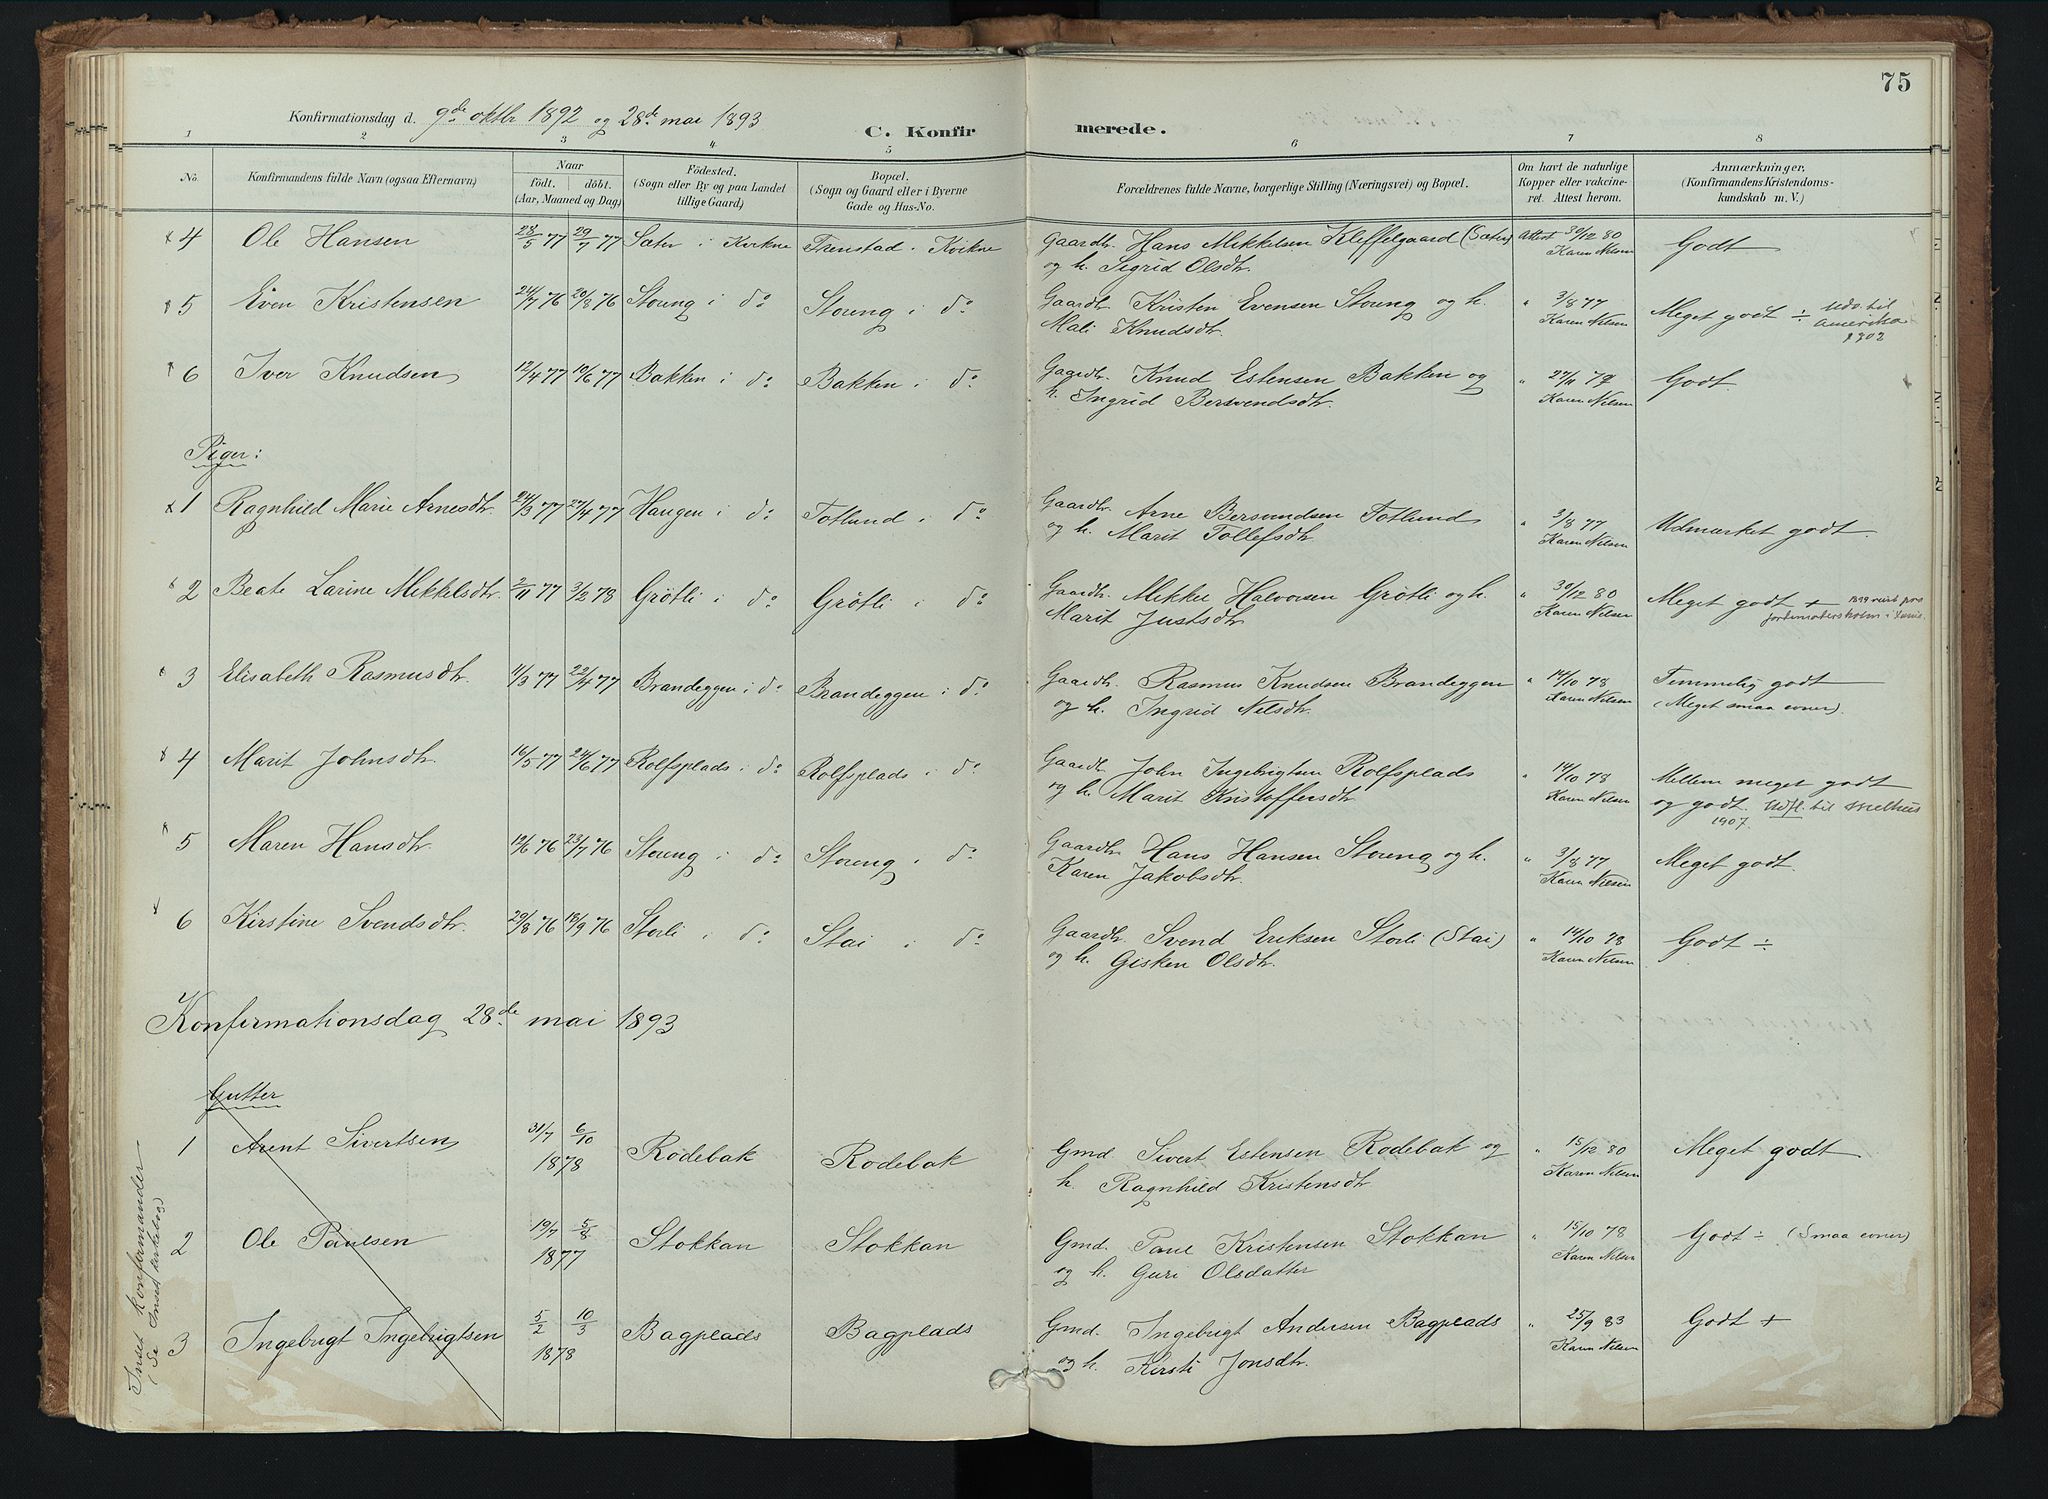 75
Konfirmationsdag d. 9de oktbr 1892 og 28de mai 1893
C. Konfirmerede.
1 2 3 4 5 6 7 8
No. Konfirmandens fulde Navn (ogsaa Efternavn) Naar födt. döbt. (Aar, Maaned og Dag) Födested. (Sogn eller By og paa Landet tillige Gaard) Bopæl. (Sogn og Gaard eller i Byerne Gade og Hus-No. Forældrenes fulde Navne, borgerlige Stilling (Næringsvei) og Bopæl. Om havt de naturlige Kopper eller vakcineret. Attest herom. Anmærkninger, (Konfirmandens Kristendomskundskab m. V.)
4 Ole Hansen 28/5 77 29/7 77 Sæter i Kvikne Frenstad i Kvikne Gaardbr. Hans Mikkelsen Kleffelgaard (Sæter) Attest 30/12 80 Godt
og h. Sigrid Olsdtr. Karen Nilsen
5 Even Kristensen 24/7 76 20/8 76 Storeng i do Storeng i do Gaardbr. Kristen Evensen Storeng og h. " 3/8 77 Meget godt ÷ Udv. til
Mali Knudsdtr. Karen Nilsen amerika
1902
6 Iver Knudsen 12/4 77 10/6 77 Bakken i do Bakken i do Gaardbr. Knud Estensen Bakken og " 27/11 79 Godt.
h. Ingrid Bersvendsdtr. Karen Nilsen
Piger:
1 Ragnhild Marie Arnesdtr. 24/3 77 27/4 77 Haugen i do Totlund i do Gaardbr. Arne Bersvendsen Totlund " 3/8 77 Udmærket godt.
og h. Marit Tollefsdtr Karen Nilsen
2 Beate Larine Mikkelsdtr. 2/11 77 3/2 78 Grötli i do Grötli i do Gaardbr. Mikkel Halvorsen Grötli og h. " 30/12 80 Meget godt + 1899 reist
Marit Justsdtr Karen Nilsen
3 Elisabeth Rasmusdtr. 11/3 77 22/4 77 Brandeggen i do Brandeggen i do Gaardbr. Rasmus Knudsen Brandeggen " 14/10 78 Temmelig godt
og h. Ingrid Nilsdtr. Karen Nilsen (Meget smaa evner).
4 Marit Johnsdtr. 16/5 77 24/6 77 Rolfsplads i do Rolfsplads i do Gaardbr. John Ingebrigtsen Rolfsplads " 14/10 78 Mellem meget godt
og h. Marit Kristoffersdtr. Karen Nilsen og godt. Udfl. til Melhus
1907.
5 Maren Hansdtr. 19/6 76 23/7 76 Storeng i do Storeng i do Gaardbr. Hans Hansen Storeng og h. " 3/8 77 Meget godt.
Karen Jakobsdtr. Karen Nilsen
6 Kirstine Svendsdtr. 29/8 76 18/9 76 Storli i do Stai i do Gaardbr. Svend Eriksen Storli (Stai) " 14/10 78 Godt ÷
og h. Gisken Olsdtr. Karen Nilsen
Konfirmationsdag 28de mai 1893
Gutter
1 Arent Sivertsen 31/7 6/10 1878 Rödebak Rödebak Gmd. Sivert Estensen Rödebak og " 15/12 80 Meget godt
h. Ragnhild Kristensdtr Karen Nilsen
2 Ole Paulsen 19/7 5/8 1877 Stokkan Stokkan Gmd. Paul Kristensen Stokkan " 15/10 78 Godt ÷ (Smaa evner)
og h. Guri Olsdatter Karen Nilsen
3 Ingebrigt Ingebrigtsen 5/2 10/3 1878 Bagplads Bagplads Gmd. Ingebrigt Andersen Bagplads " 25/9 83 Godt +
og h. Kirsti Jonsdtr. Karen Nilsen
Inset konfirmander
(Se Inset kirkebog)